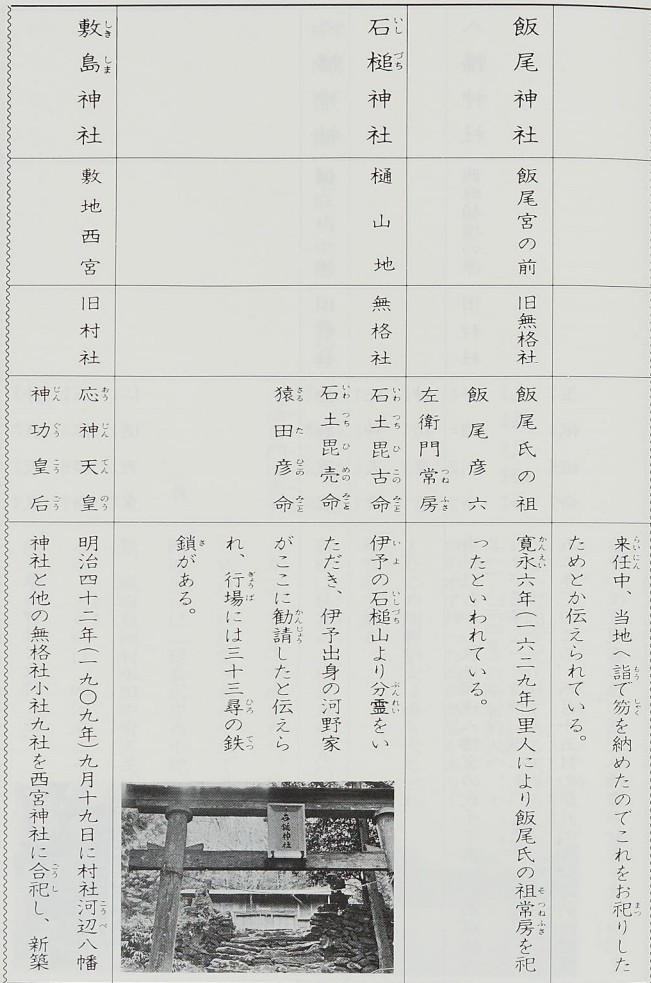 来任中、当地へ詣で笏を納めたのでこれをお祀りした
ためとか伝えられている。
飯尾神社
飯尾宮の前
旧無格社
飯尾氏の祖
飯尾彦六
左衛門常房
寛永六年(一六二九年)里人により飯尾氏の祖常房を祀
ったといわれている。
石槌神社
樋山地
無格社
石土毘古命
石土毘売命
猿田彦命
伊予の石槌山より分霊をい
ただき、伊予出身の河野家
がここに勧請したと伝えら
れ、行場には三十三尋の鉄
鎖がある。
石鎚神社
敷島神社
敷地西宮
旧村社
応神天皇
神功皇后
明治四十二年(一九〇九年)九月十九日に村社河辺八幡
神社と他の無格社小社九社を西宮神社に合祀し、新築